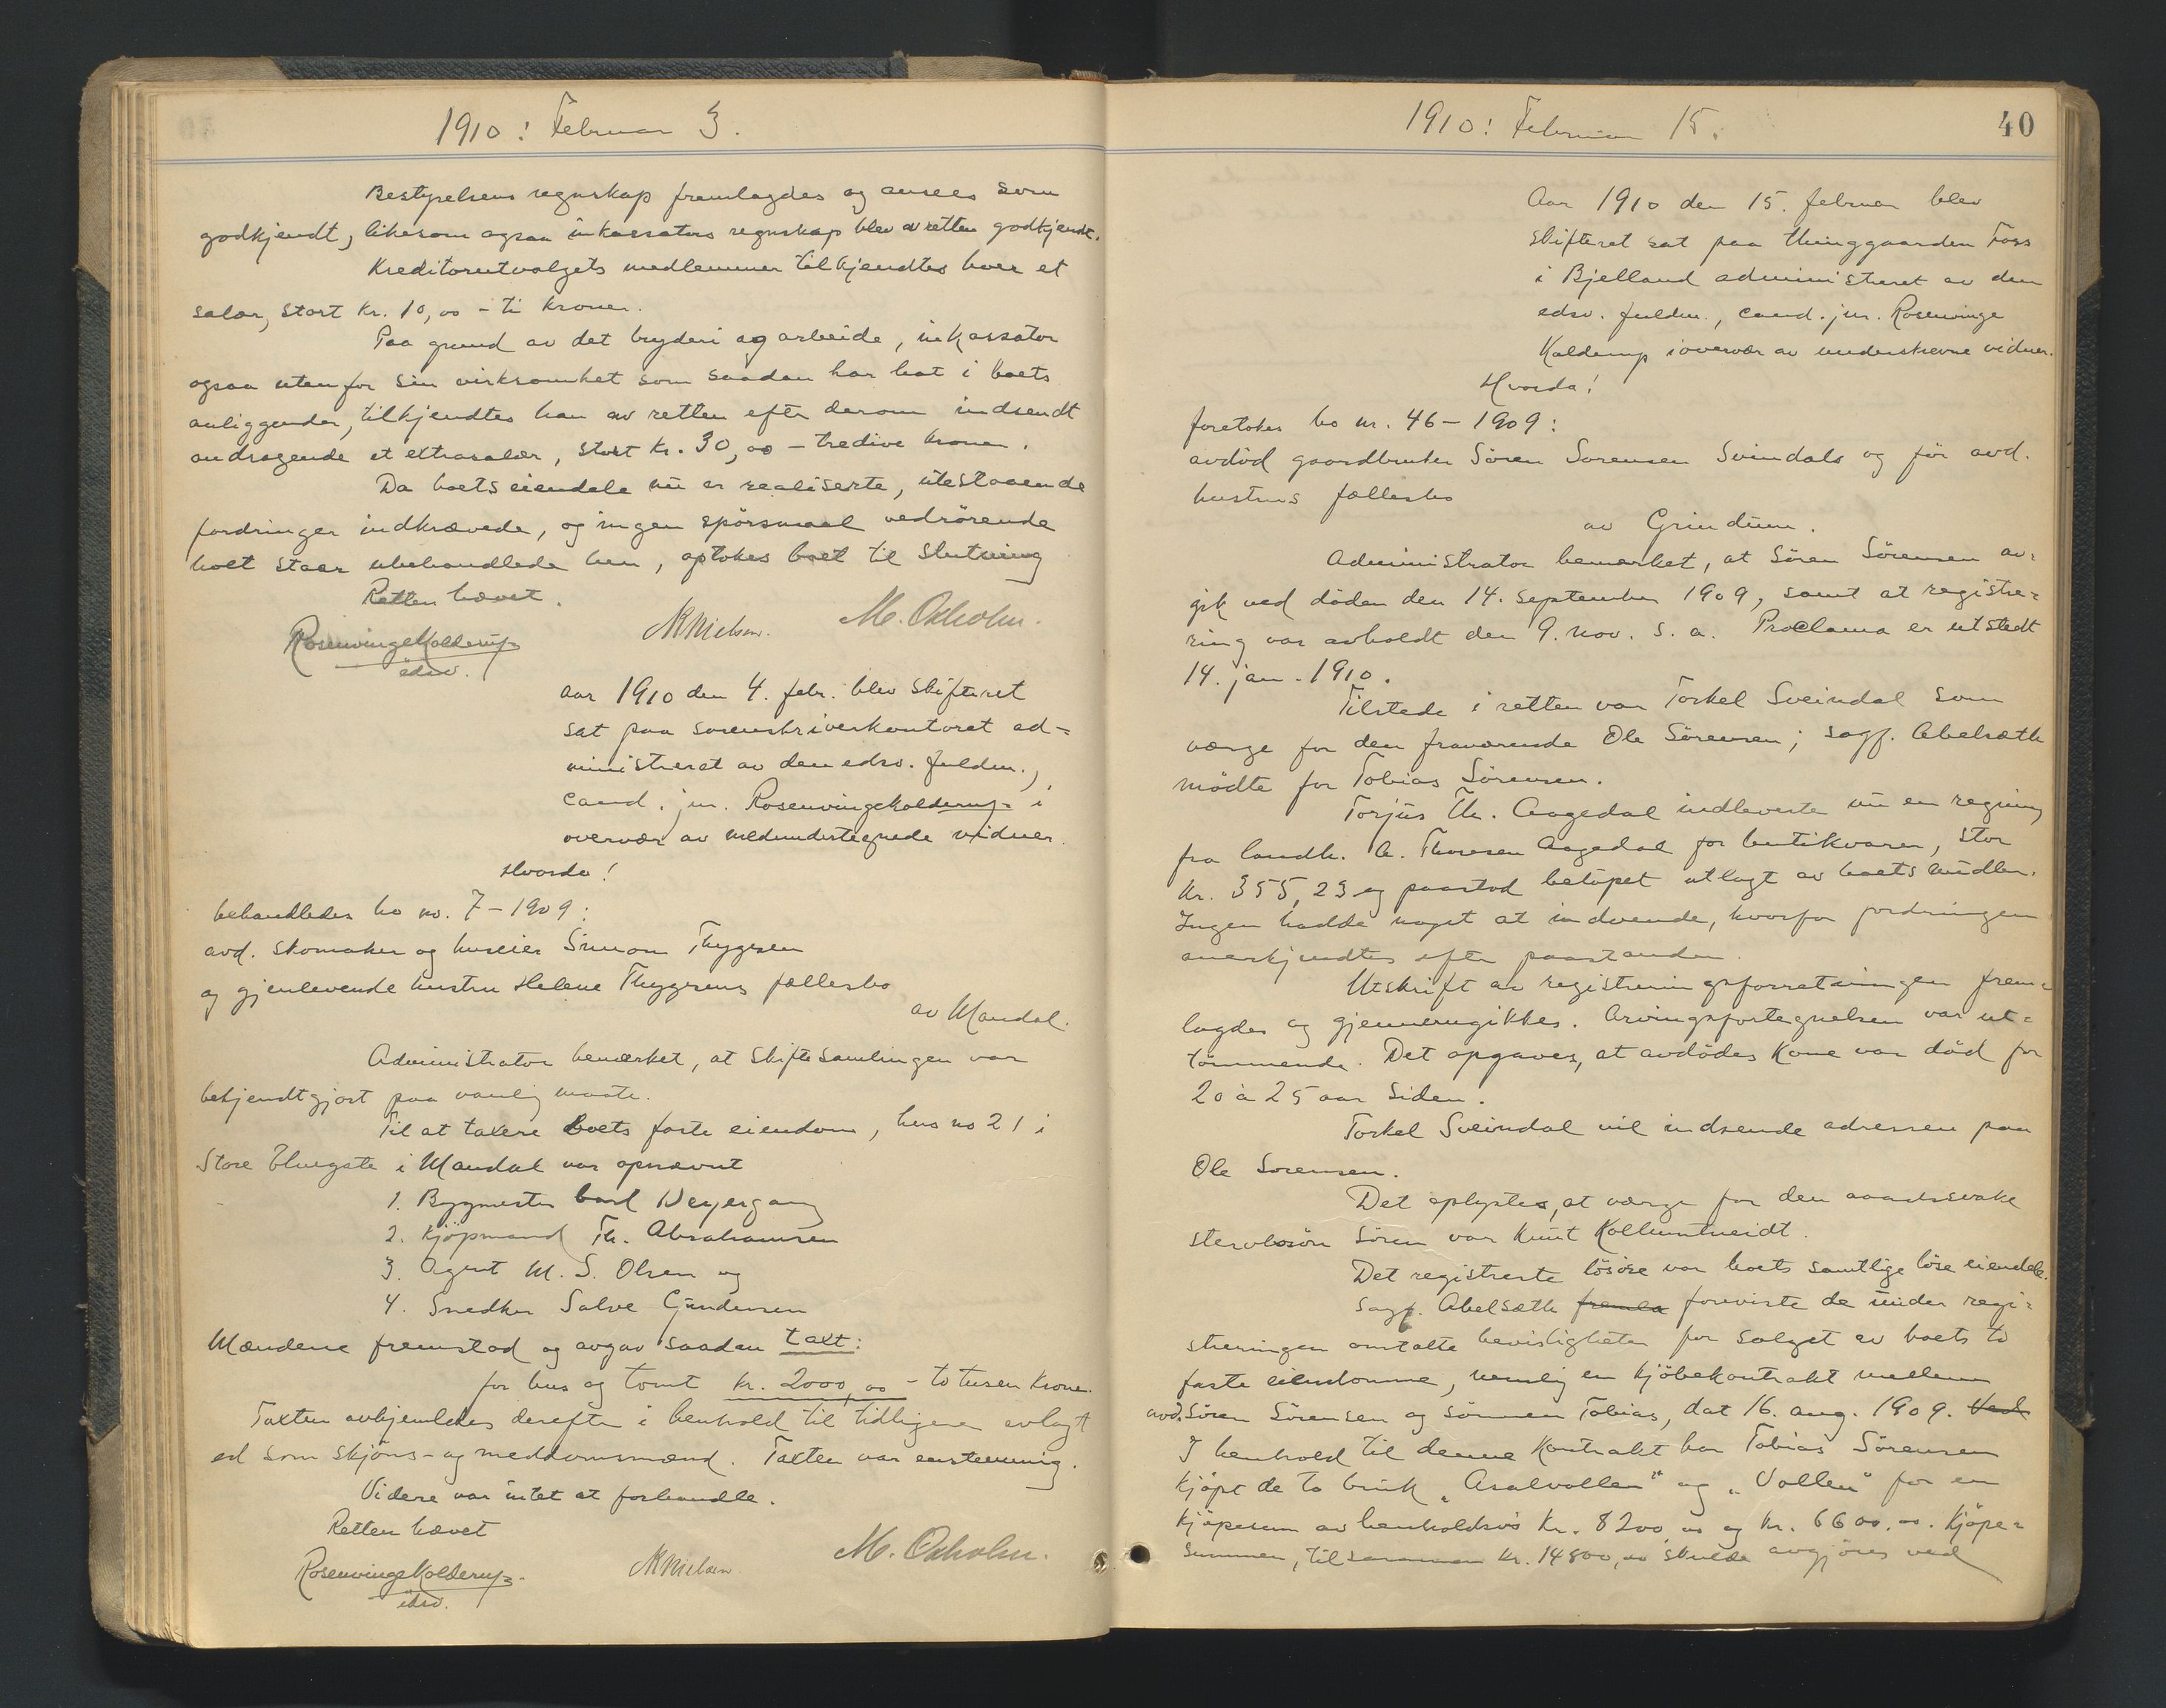 1910: Februar 3.
Bestyrelsens regnskap fremlagdes og ansees som
godkjendt, likesom ogsaa inkassators regnskap blev av retten godkjendt.
Kreditorutvalgets medlemmer tilkjendtes hver et
salær, stort kr. 10,00 - ti kroner.
Paa grund av det bryderi og arbeide, inkassator
ogsaa utenfor sin virksomhet som saadan har hat i boets
anliggender, tilkjendtes han av retten efter derom indsendt
andragende et extrasalær, stort kr. 30,00 - tredive kroner.
Da boets eiendele nu er realiserte, utestaaende
fordringer indkrævede, og ingen spörsmaal vedrörende
boet staar ubehandlede hen, optokes boet til slutning
Retten hævet.
Rosenvinge Kolderup
edsv.
NNielsen.
M. Oxholm.
Aar 1910 den 4. febr. blev skifteret
sat paa sorenskriverkontoret ad=
ministreret av den edsv. fuldm.,
cand. jur. Rosenvinge Kolderup i
overvær av medundertegnede vidner.
Hvorda!
behandledes bo no. 7 - 1909:
avd. skomaker og huseier Simon Thygesen
og gjenlevende hustru Helene Thygesens fællesbo
av Mandal.
Administrator bemerket, at skiftesamlingen var
bekjendtgjort paa vanlig maate.
Til at taxere boets faste eiendom, hus no 21 i
Store Elvegate i Mandal var opnævnt
1. Bygmester Carl Weyergang
2. Kjöpmand Th. Abrahamsen
3. Agent M. S. Olsen og
4. Snedker Salve Gundersen
Mændene fremstod og avgav saadan taxt:
for hus og tomt kr. 2000,00 - to tusen kroner.
Taxten avhjemledes derefter i henhold til tidligere avlagt
ed som skjöns- og meddomsmænd. Taxten var enstemmig.
Videre var intet at forhandle.
Retten hævet
Rosenvinge Kolderup
edsv.
NNielsen.
M. Oxholm.
1910: Februar 15.
40
Aar 1910 den 15. februar blev
skifteret sat paa thinggaarden Foss
i Bjelland administreret av den
edsv. fuldm., cand. jur. Rosenvinge
Kolderup i overvær av underskrevne vidner.
Hvorda!
foretokes bo nr. 46 - 1909:
avdöd gaardbruker Sören Sorensen Svindals og för avd.
hustrus fællesbo
av Grindum.
Administrator bemerket, at Sören Sörensen av=
gik ved döden den 14. september 1909, samt at registre=
ring var avholdt den 9. nov. s. a. Proclama er utstedt
14. jan. 1910.
Tilstede i retten var Torkel Sveindal som
værge for den fraværende Ole Sörensen; sagf. Abelsæth
mödte for Tobias Sörensen.
Torjus Th. Aagedal indleverte nu en regning
fra landh. A. Thoresen Aagedal for butikvarer, stor
kr. 355,23 og paastod belöpet utlagt av boets midler.
Ingen hadde noget at indvende, hvorfor fordringen
anerkjendtes efter paastanden.
Utskrift av registreringsforretningen frem=
lagdes og gjennemgikkes. Arvingsfortegnelsen var ut=
tömmende. Det opgaves, at avdödes kone var död for
20 à 25 aar siden.
Torkel Sveindal vil indsende adressen paa
Ole Sorensen.
Det oplystes, at værge for den aandssvake
stervbosön Sören var Knut
Det registrerte lösöre var boets samtlige löse eiendele.
Sagf. Abelsæth fremla foreviste de under regi=
streringen omtalte bevisligheter for salget av boets to
faste eiendomme, nemlig en kjöbekontrakt mellem
avd. Sören Sörensen og sönnen Tobias, dat 16. aug. 1909. Ved
I henhold til denne kontrakt har Tobias Sörensen
kjöpt de to bruk "Asalvollen" og "Vollen" for en
kjöpesum av henholdsvis kr. 8200,00 og kr. 6600,00. Kjöpe=
summen, tilsammen kr. 14800,00 skulde avgjöres ved